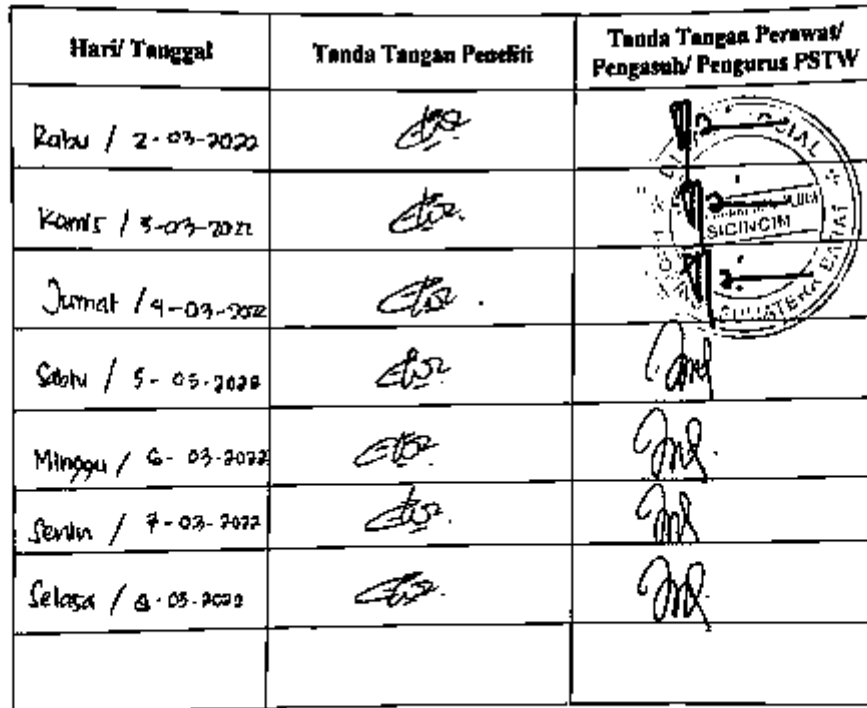 Hari/ Tanggal
Tanda Tangan Peneliti
Tanda Tangan Perawat/
Pengasuh/ Pengurus PSTW
Rabu / 2-03-2022
Kamis / 3-03-2022
SICINCIN
Jumat / 4-03-2022
SUMATERA BARAT
Sabtu / 5-03-2022
Minggu / 6-03-2022
Senin / 7-03-2022
Selasa / 8-03-2022